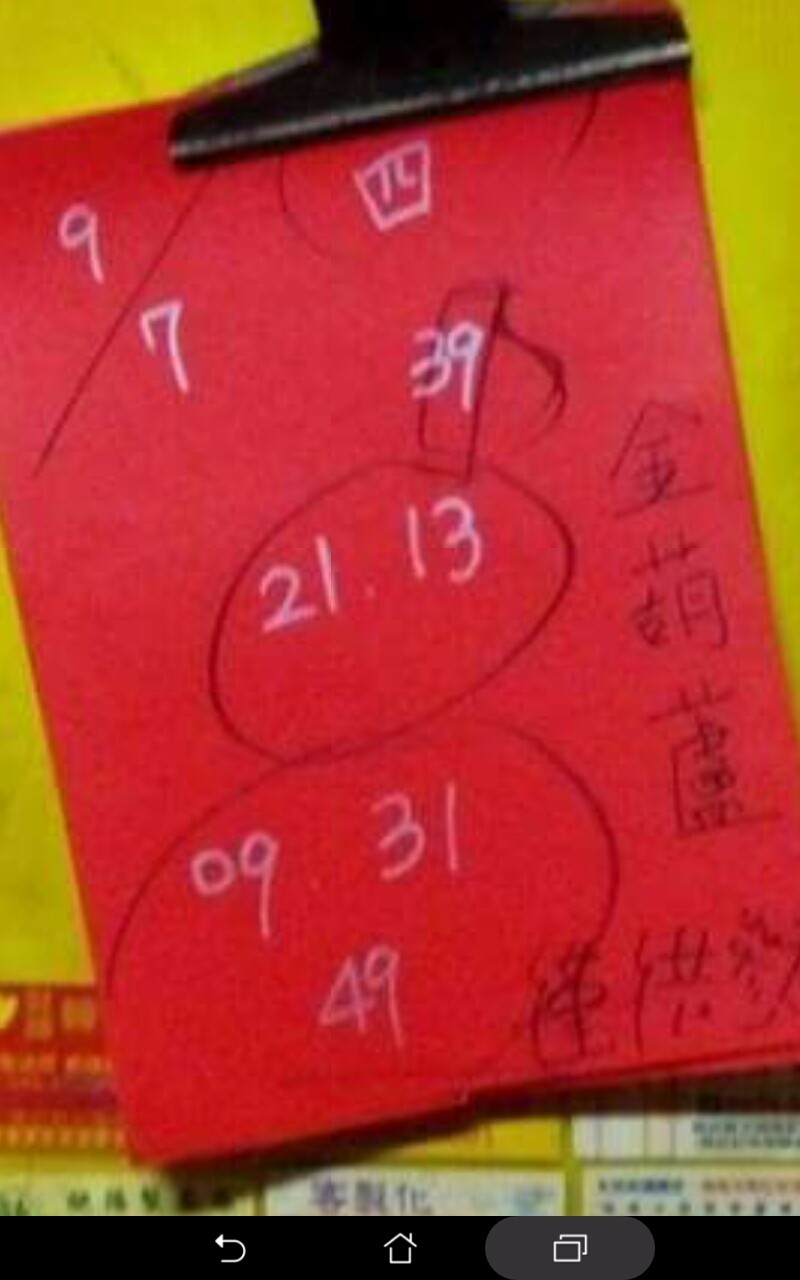 四
9
7
39
21.13
09 31
49
金葫蘆
僅供參
客製化